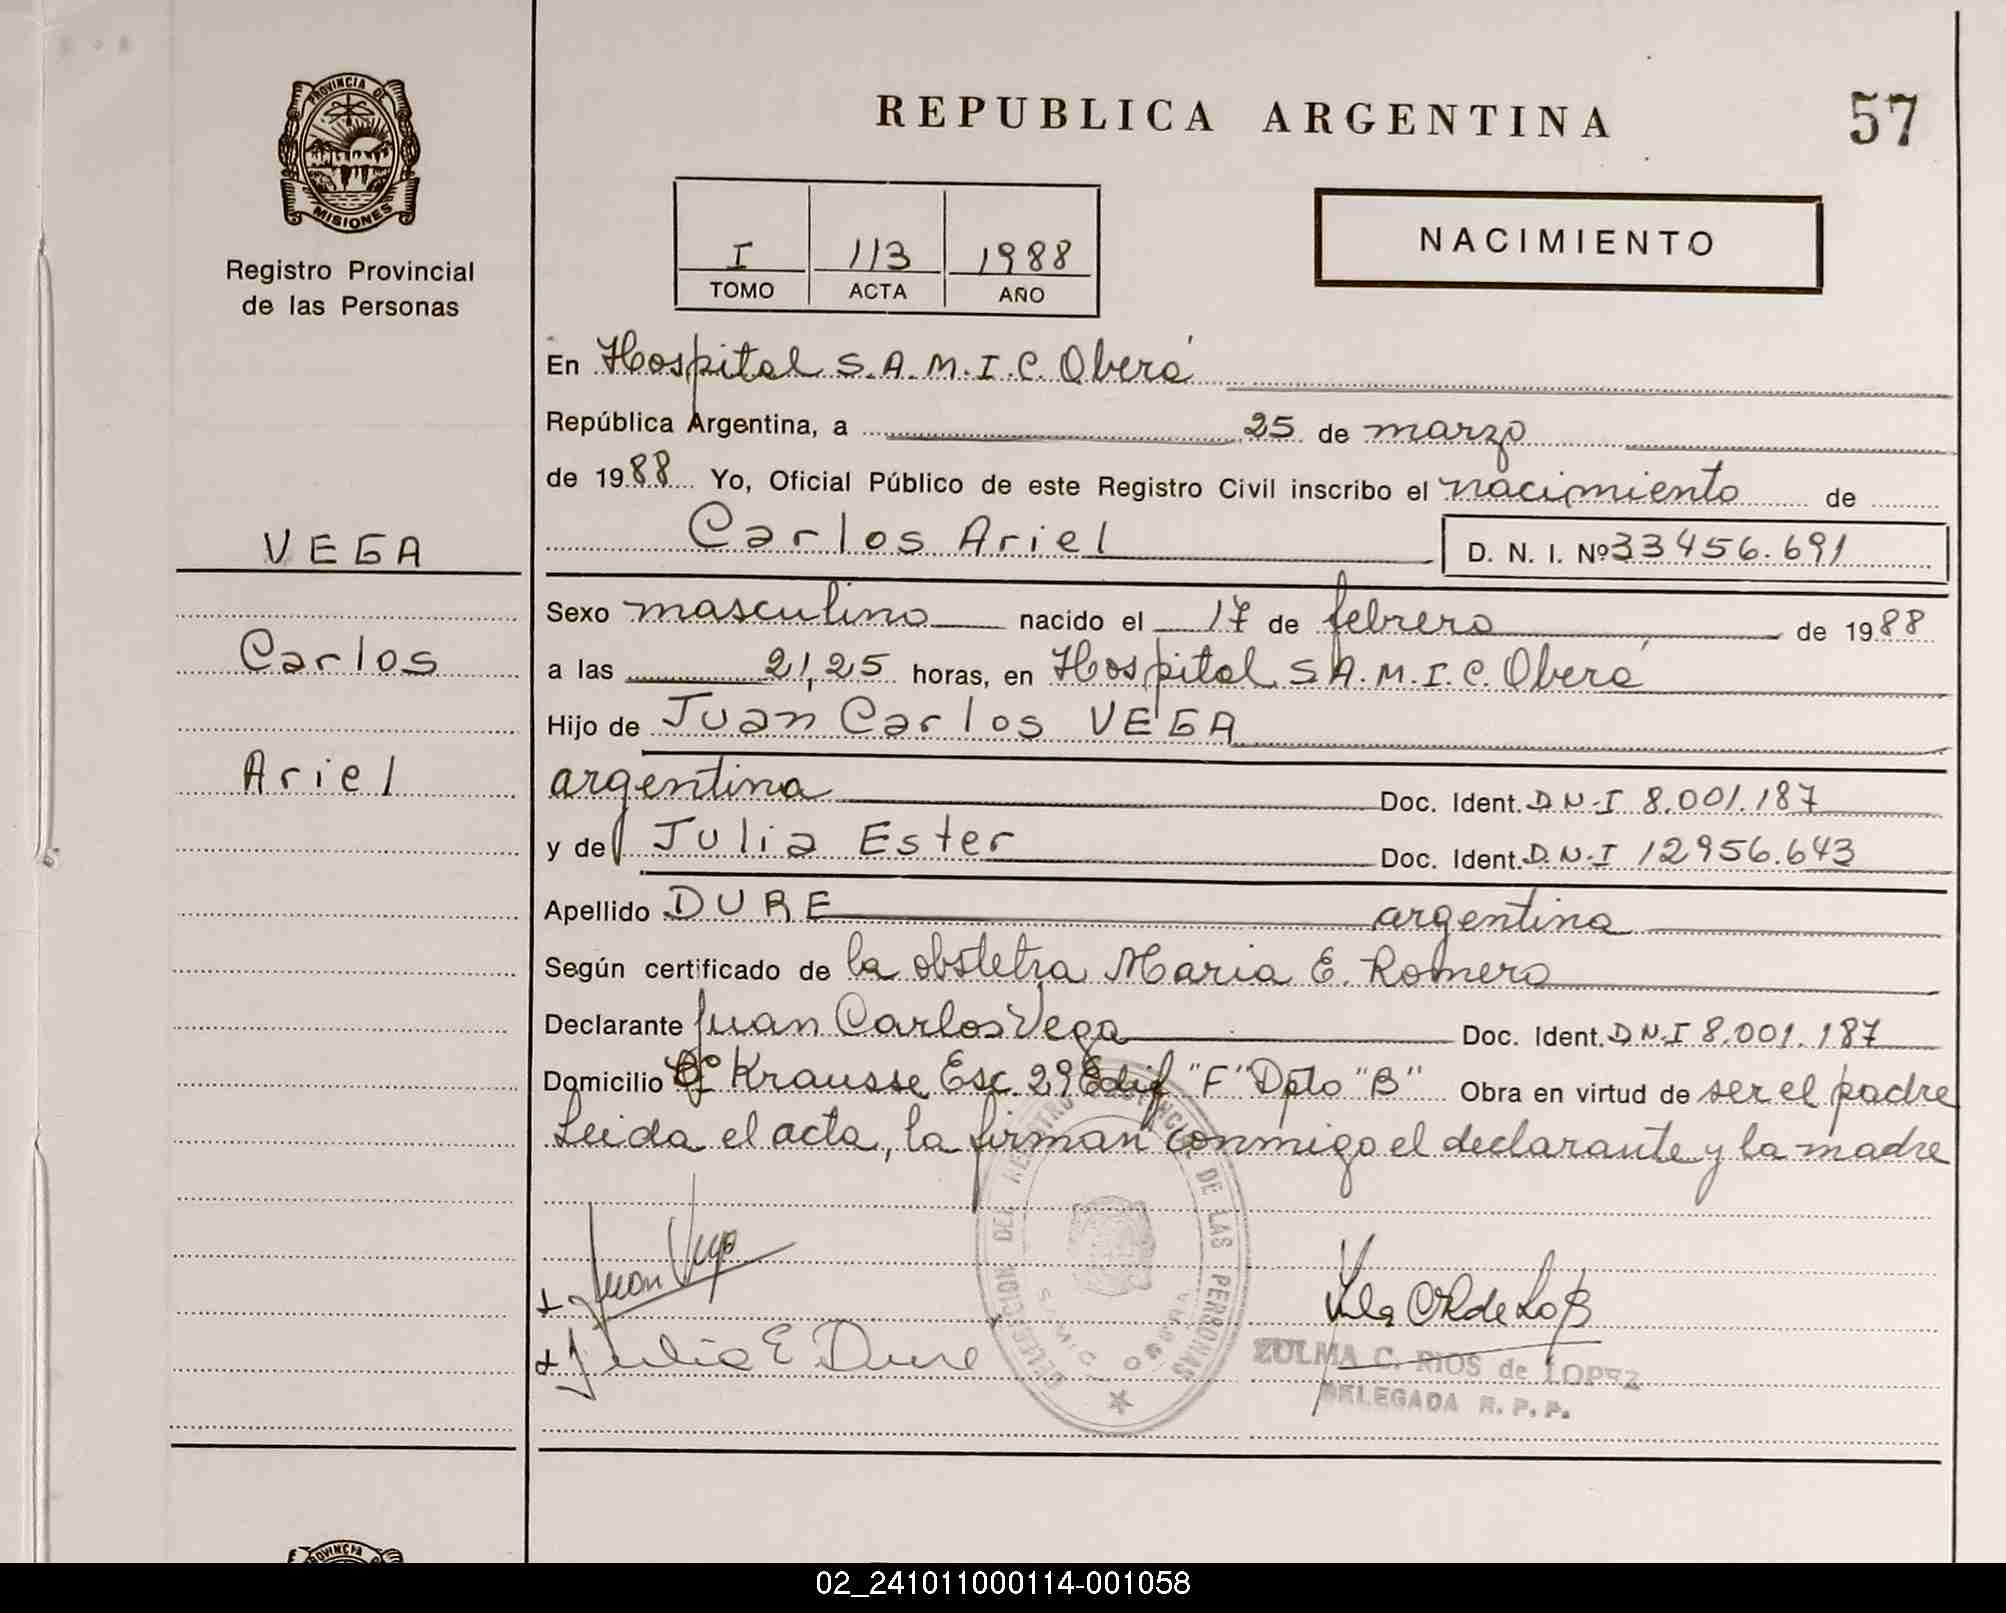 REPUBLICA ARGENTINA
57
PROVINCIA DE
MISIONES
Registro Provincial
de las Personas
I 113 1988
TOMO ACTA AÑO
NACIMIENTO
En Hospital S.A.M.I.C. Oberá
República Argentina, a 25 de marzo
de 1988 Yo, Oficial Público de este Registro Civil inscribo el nacimiento de
Carlos Ariel D. N. I. Nº 33456.691
VEGA
Carlos
Ariel
Sexo masculino nacido el 17 de febrero de 1988
a las 21,25 horas, en Hospital S.A.M.I.C. Oberá
Hijo de Juan Carlos VEGA
argentina Doc. Ident. D.N.I 8.001.187
y de Julia Ester Doc. Ident. D.N.I 12956.643
Apellido DURE argentina
Según certificado de la obstetra Maria E. Romero
Declarante Juan Carlos Vega Doc. Ident. D.N.I 8.001.187
Domicilio Krausse Esc. 29 Edif "F" Dpto "B" Obra en virtud de ser el padre
Leida el acta, la firman conmigo el declarante y la madre
DELEGACION DEL REGISTRO PROVINCIAL DE LAS PERSONAS
S.A.M.I.C. OBERA
Juan Vega
Julia E Dure
ZULMA C. RIOS de LOPEZ
DELEGADA R. P. P.
PROVINCIA
02_241011000114-001058